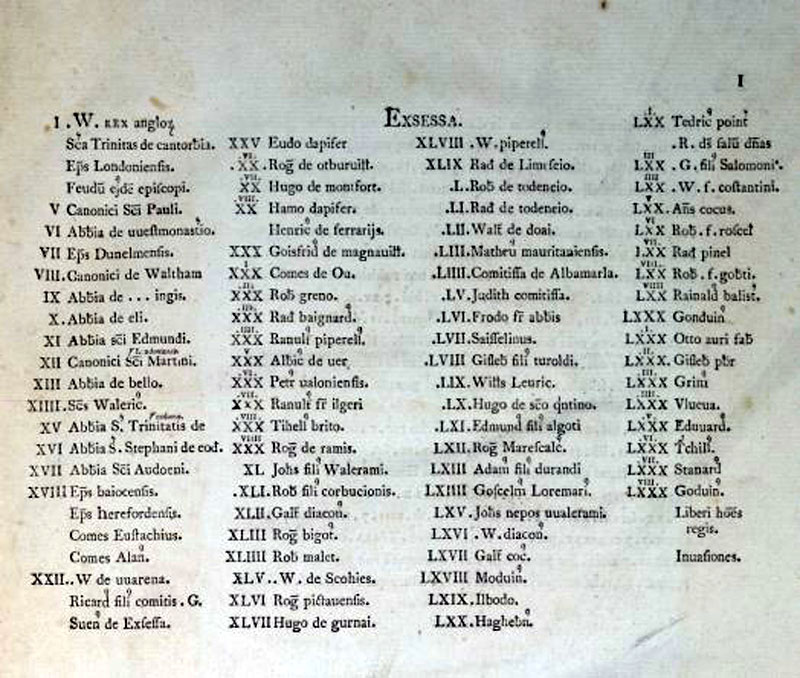 I
EXSESSA.
I .W. REX angloꝝ
Sc̄a Trinitas de cantorbia.
Ep̄s Londoniensis.
Feudū ejdē episcopi.
V Canonici Sc̄i Pauli.
VI Abb̄ia de uuestmonastio.
VII Ep̄s Dunelmensis.
VIII. Canonici de Waltham
IX Abb̄ia de . . . ingis.
X. Abb̄ia de eli.
XI Abb̄ia sc̄i Edmundi.
XII Canonici Sc̄i Martini.
XIII Abb̄ia de bello.
XIIII. Sc̄s Waleric᾿.
XV Abb̄ia S. Trinitatis de
XVI Abb̄ia S. Stephani de cod.
XVII Abb̄ia Sc̄i Audoeni.
XVIII Ep̄s baiocensis.
Ep̄s herefordensis.
Comes Eustachius.
Comes Alan᾿.
XXII..W de uuarena.
Ricard᾿ fili᾿ comitis . G.
Suen᾿ de Exsessa.
XXV Eudo dapifer
.XX. Rog̃ de otburuilt.
XX Hugo de montfort.
XX Hamo dapifer.
Henric᾿ de ferrarijs.
XXX Goisfrid᾿ de magnauilt.
XXX Comes de Ou.
XXX Rob᾿ greno.
XXX Rad᾿ baignard᾿.
XXX Ranulf᾿ piperell᾿.
XXX Albic᾿ de uer
XXX Petr᾿ ualoniensis.
XXX Ranulf᾿ fr̄ ilgeri
XXX Tihell᾿ brito.
XXX Rog̃ de ramis.
XL Johs fili᾿ Walerami.
.XLI. Rob᾿ fili᾿ corbucionis.
XLII. Galt᾿ diacon᾿.
XLIII Rog̃ bigot᾿.
XLIIII Rob᾿ malet.
XLV..W. de Scohies.
XLVI Rog̃ pictauensis.
XLVII Hugo de gurnai.
XLVIII .W. piperell᾿.
XLIX Rad᾿ de Limeseio.
.L. Rob᾿ de todeneio.
.LI. Rad᾿ de todeneio.
.LII. Walt᾿ de doai.
.LIII. Matheu᾿ mauritaniensis.
.LIIII. Comitissa de Albamarla.
.LV. Judith comitissa.
.LVI. Frodo fr̄ abbis
.LVII. Saisselinus.
.LVIII Gisleb᾿ fili᾿ turoldi.
.LIX. Witts Leuric.
.LX. Hugo de sc̄o qntino.
.LXI. Edmund᾿ fili᾿ algoti
LXII. Rog̃ Marescalc᾿.
LXIII Adam fili᾿ durandi
LXIIII Goscelm᾿ Loremari᾿.
LXV. Johs nepos uualerami.
LXVI .W. diacon᾿.
LXVII Galt᾿ coc᾿.
LXVIII Moduin᾿.
LXIX. Ilbodo.
LXX. Hagheba᾿.
LXX Tedric᾿ point᾿
.R. ds̄ saluū dn̄as
LXX . G. fili᾿ Salomonis.
LXX . W. f. costantini.
LXX. Ans̄ cocus.
LXX Rob᾿. f. roscel᾿
LXX Rad᾿ pinel
LXX Rob᾿. f. gobti.
LXX Rainald᾿ balist᾿.
LXXX Gonduin᾿
LXXX Otto auri fab᾿
LXXX. Gisleb᾿ pbr̄
LXXX Grim᾿
LXXX Vlueua.
LXXX Eduuard᾿.
LXXX Tchill᾿.
LXXX Stanard᾿
LXXX Goduin᾿.
Liberi hoēs
regis.
Inuasiones.